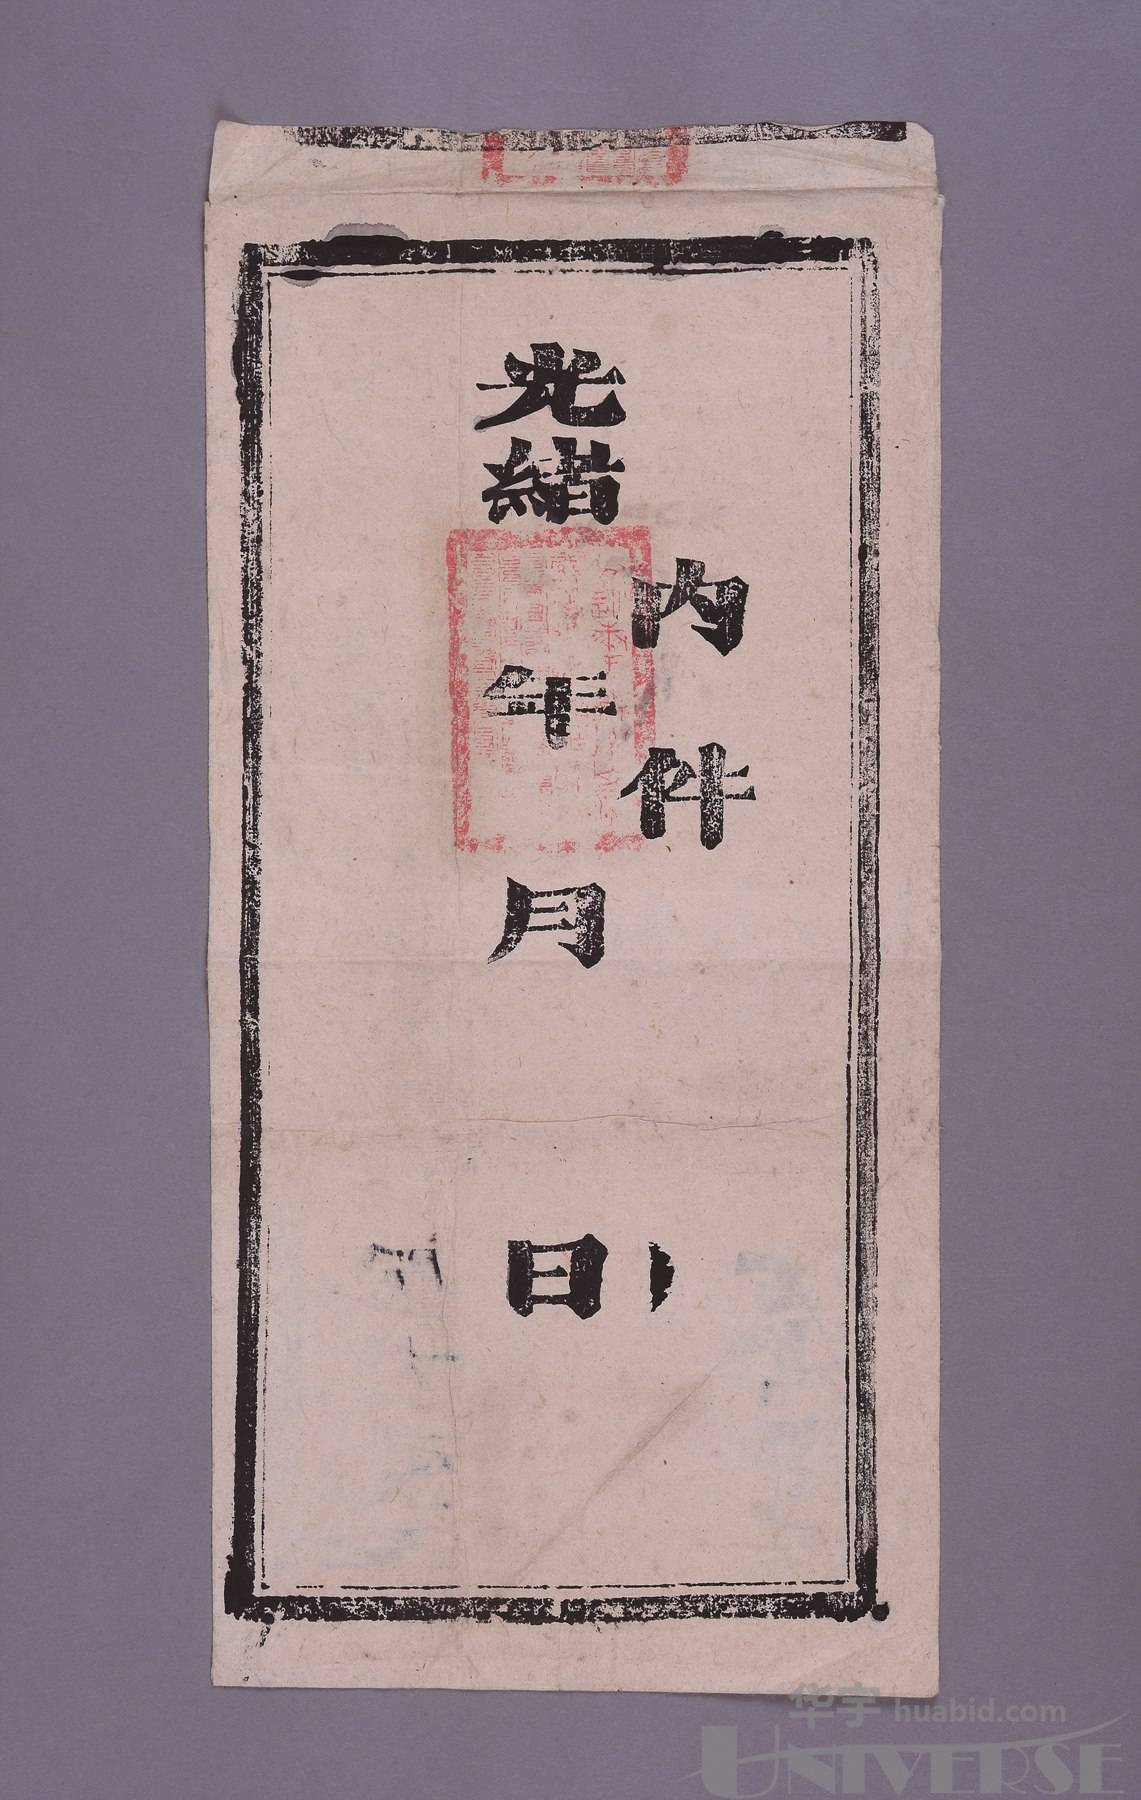 内件
光緒年月日
华宇 huabid.com
UNIVERSE